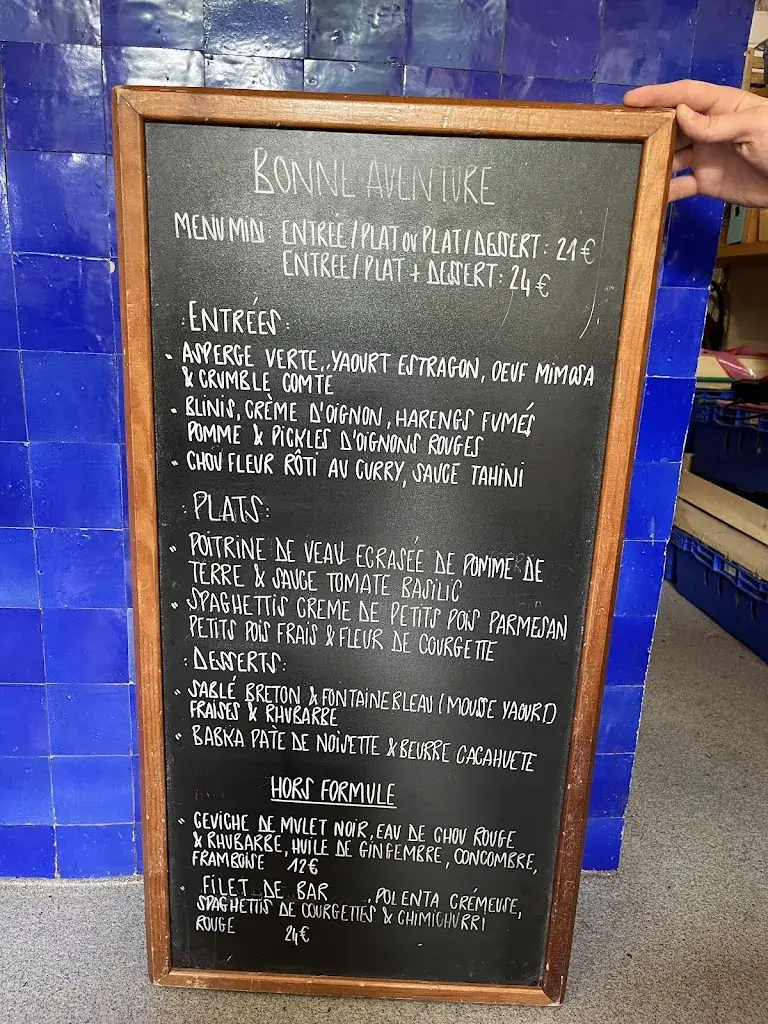 BONNE AVENTURE
MENU MIDI: ENTRÉE/PLAT OU PLAT/DESSERT: 21€
ENTREE/PLAT + DESSERT: 24€
:ENTRÉES:
• ASPERGE VERTE, YAOURT ESTRAGON, OEUF MIMOSA
& CRUMBLE COMTE
• BLINIS, CRÈME D'OIGNON, HARENGS FUMÉS
POMME & PICKLES D'OIGNONS ROUGES
• CHOU FLEUR RÔTI AU CURRY, SAUCE TAHINI
:PLATS:
• POITRINE DE VEAU ECRASÉE DE POMME DE
TERRE & SAUCE TOMATE BASILIC
• SPAGHETTIS CREME DE PETITS POIS PARMESAN
PETITS POIS FRAIS & FLEUR DE COURGETTE
:DESSERTS:
• SABLÉ BRETON & FONTAINEBLEAU (MOUSSE YAOURT)
FRAISES & RHUBARBE
• BABKA PATE DE NOISETTE & BEURRE CACAHUETE
HORS FORMULE
• CEVICHE DE MULET NOIR, EAU DE CHOU ROUGE
& RHUBARBE, HUILE DE GINGEMBRE, CONCOMBRE,
FRAMBOISE 12€
• FILET DE BAR , POLENTA CRÉMEUSE,
SPAGHETTIS DE COURGETTES & CHIMICHURRI
ROUGE 24€